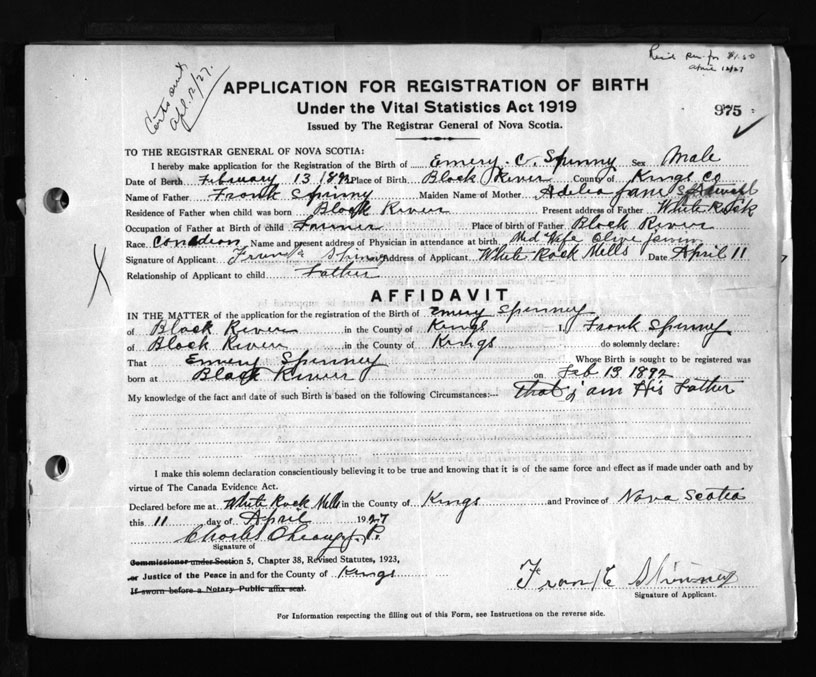 Rec'd for $1.50
April 12/27
Certs sent
Apl. 12/27.
APPLICATION FOR REGISTRATION OF BIRTH
Under the Vital Statistics Act 1919
975
Issued by The Registrar General of Nova Scotia.
TO THE REGISTRAR GENERAL OF NOVA SCOTIA:
I hereby make application for the Registration of the Birth of Emery C. Spinny Sex Male
Date of Berth February 13 1892 Place of Birth Black River County of Kings Co
Name of Father Frank Spinny Maiden Name of Mother Adelia Jane
Residence of Father when child was born Black River Present address of Father White Rock
Occupation of Father at Birth of child Farmer Place of birth of Father Black River
Race Canadian Name and present address of Physician in attendance at birth Mid Wife Olive
Signature of Applicant Frank Spinney Address of Applicant White Rock Mills Date April 11
Relationship of Applicant to child Father
AFFIDAVIT
IN THE MATTER of the application for the registration of the Birth of Emery Spinney
of Black River in the County of Kings I, Frank Spinney
of Black River in the County of Kings do solemnly declare:
That Emery Spinney Whose Birth is sought to be registered was
born at Black River on Feb 13 1892
My knowledge of the fact and date of such Birth is based on the following Circumstances:— That j am His Father
I make this solemn declaration conscientiously believing it to be true and knowing that it is of the same force and effect as if made under oath and by
virtue of The Canada Evidence Act.
Declared before me at White Rock Mills in the County of Kings and Province of Nova Scotia
this 11 day of April 1927
Charles
Signature of
Commissioner under Section 5, Chapter 38, Revised Statutes, 1923,
or Justice of the Peace in and for the County of Kings
If sworn before a Notary Public affix seal.
Frank Spinney
Signature of Applicant.
For Information respecting the filling out of this Form, see Instructions on the reverse side.